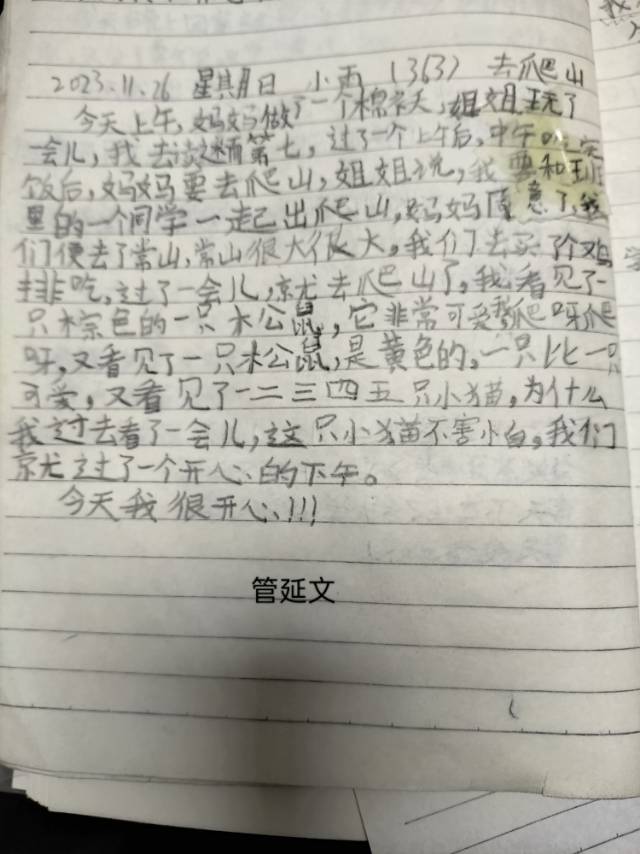 2023.11.26 星期日 小雨 (363) 去爬山
今天上午,妈妈做了一个棉袄,姐姐玩了
一会儿,我去读第七,过了一个上午后,中午吃完
饭后,妈妈要去爬山,姐姐说,我要和班
里的一个同学一起出爬山,妈妈同意了,我
们便去了常山,常山很大很大,我们去买了个鸡
排吃,过了一会儿,就去爬山了,我看见了一
只棕色的一只松鼠,它非常可爱,爬呀爬
呀,又看见了一只松鼠,是黄色的,一只比一只
可爱,又看见了一二三四五只小猫,为什么
我过去看了一会儿,这只小猫不害怕,我们
就过了一个开心的下午。
今天我很开心!!!
管延文